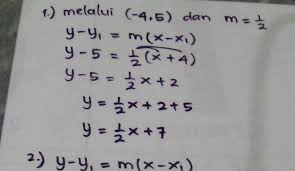 1.) melalui (-4,5) dan m = 1/2
y-y₁ = m(x-x₁)
y-5 = 1/2(x+4)
y-5 = 1/2x+2
y = 1/2x+2+5
y = 1/2x+7
2.) y-y₁ = m(x-x₁)